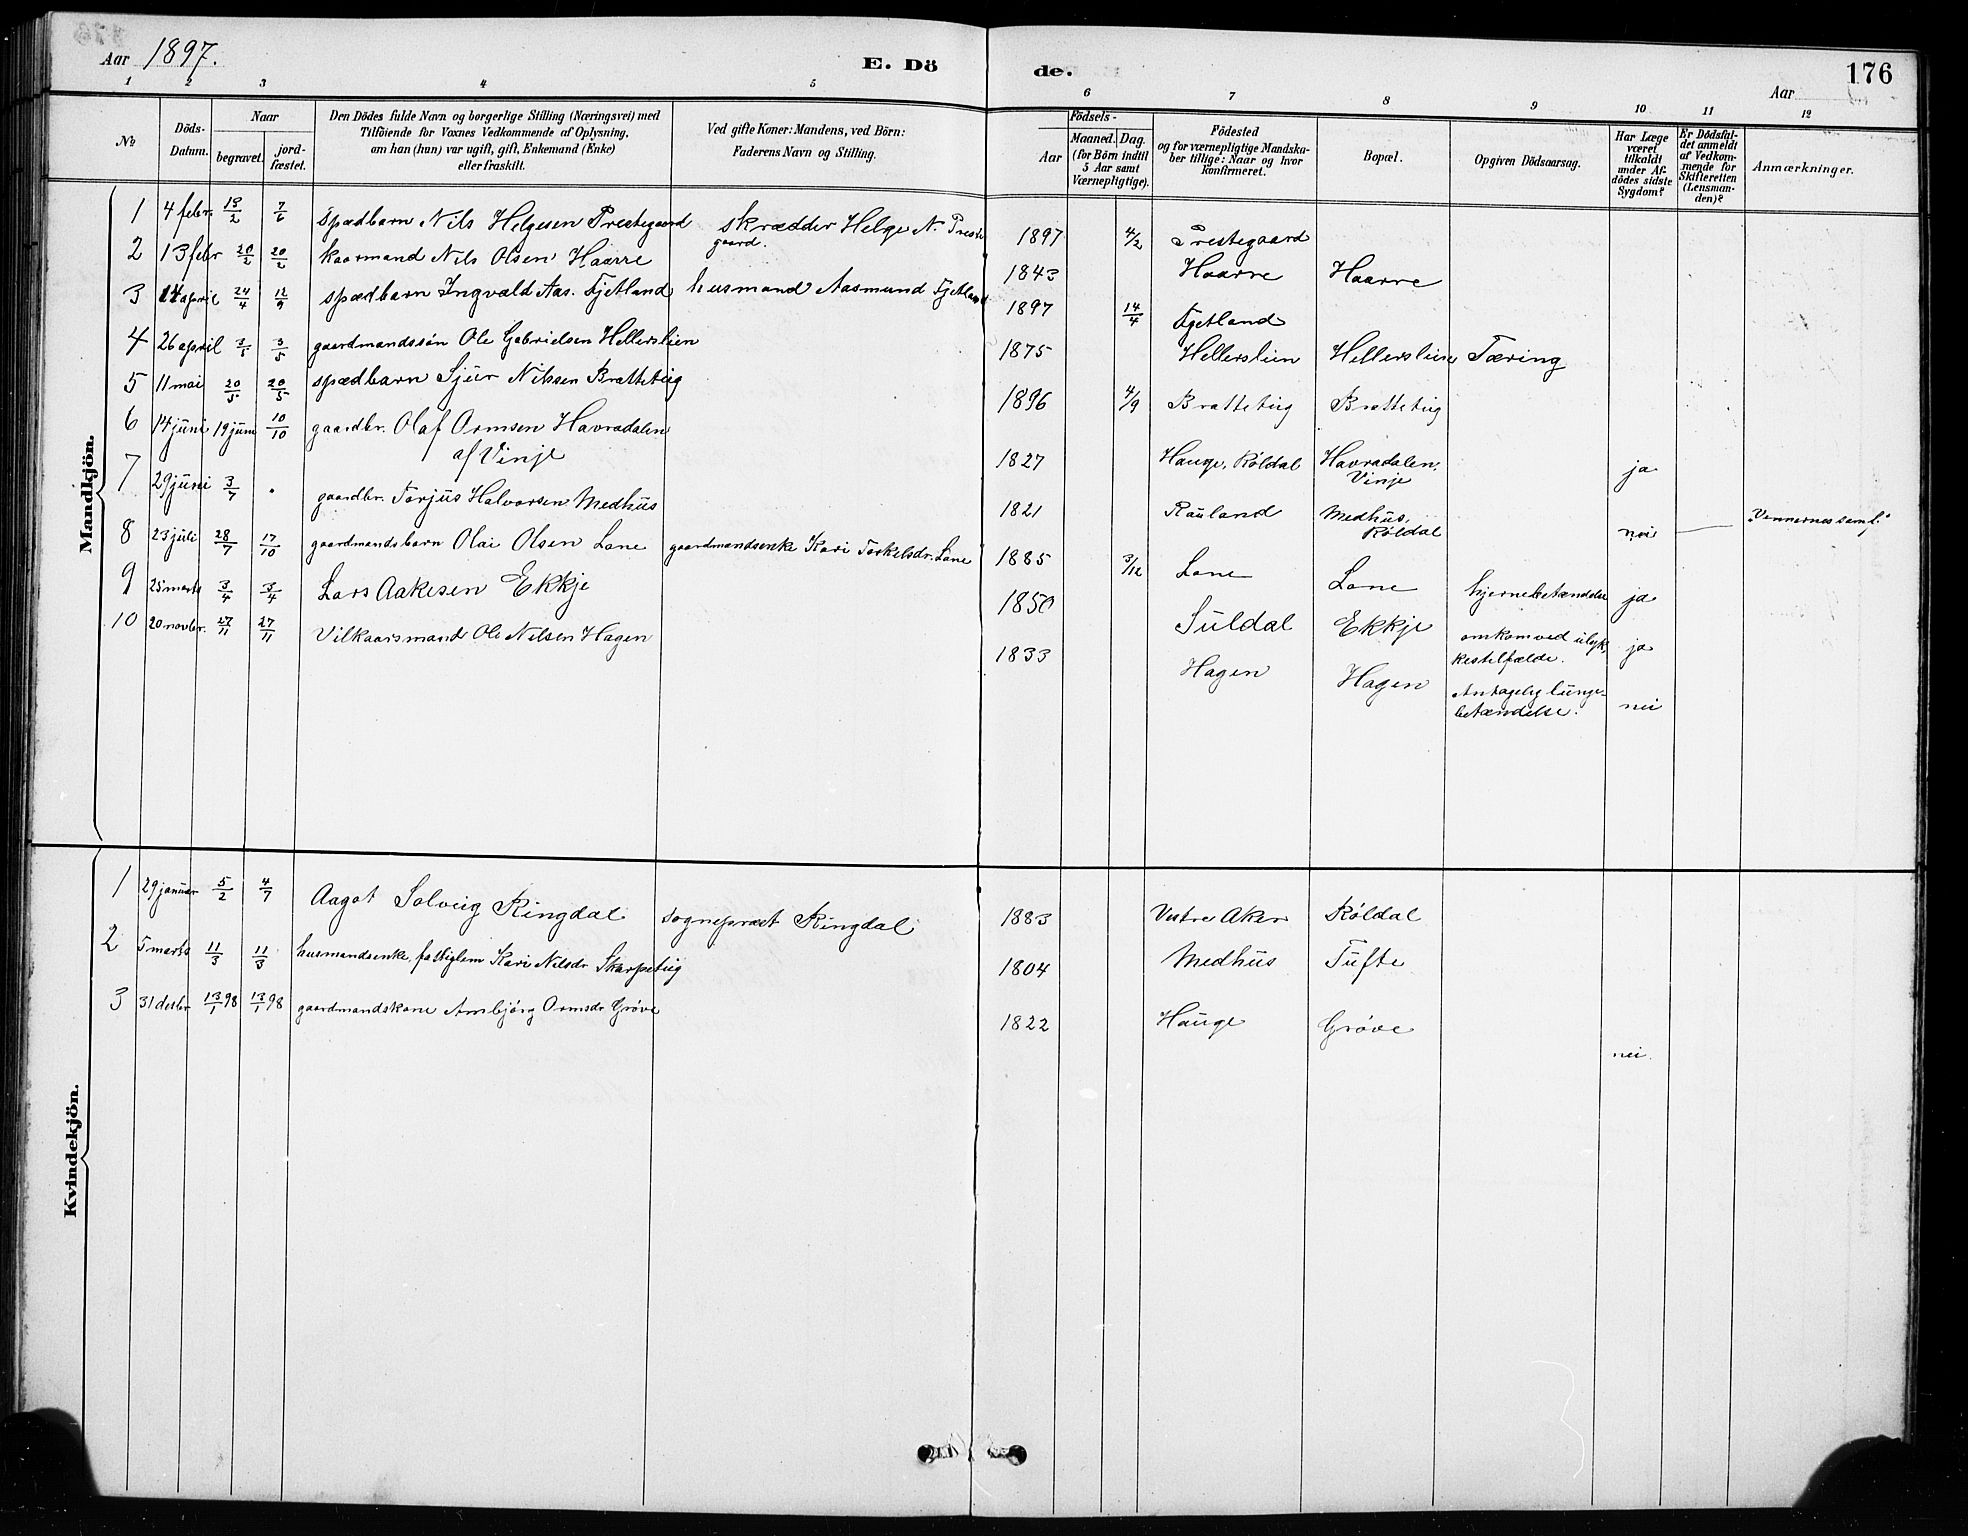 Aar 1897.
E. Dö
de.
Aar
176
1 2 3 4 5 6 7 8 9 10 11 12
№
Döds-Datum.
Naar
begravet.
jord-fæstet.
Den Dödes fulde Navn og borgerlige Stilling (Næringsvei) med
Tilföiende for Voxnes Vedkommende af Oplysning,
om han (hun) var ugift, gift, Enkemand (Enke)
eller fraskilt.
Ved gifte Koner: Mandens, ved Börn:
Faderens Navn og Stilling.
Födsels-
Aar
Maaned. Dag.
(for Börn indtil
5 Aar samt
Værnepligtige).
Födested
og for værnepligtige Mandska-
ber tillige: Naar og hvor
konfirmeret.
Bopæl.
Opgiven Dödsaarsag.
Har Læge
været
tilkaldt
under Af-
dödes sidste
Sygdom?
Er Dödsfal-
det anmeldt
af Vedkom-
mende for
Skifteretten
(Lensman-
den)?
Anmærkninger.
Mandkjön.
1 4 febr. 13/2 7/6 spædbarn Nils Helgesen Prestegaard skrædder Helge N. Preste gaard. 1897 4/2 Prestegaard
2 13 febr 20/2 20/2 kaarmand Nils Olsen Haarre 1843 Haarre Haarre
3 14 april 24/4 12/9 spædbarn Ingvald Aas. Fjetland husmand Aasmund Fjetland 1897 14/4 Fjetland
4 26 april 3/5 3/5 gaardmandssön Ole Gabrielsen Hellerslien 1875 Hellerslien Hellerslien Tæring
5 11 mai 20/5 20/5 spædbarn Sjur Nilssen Brattetug 1896 4/9 Brattetug Brattetug
6 14 juni 19 juni 10/10 gaardbr. Olaf Ormsen Havradalen
af Vinje 1827 Hauge, Röldal Havradalen, Vinje ja
7 29 juni 3/7 " gaardbr. Torjus Halvorsen Medhus 1821 Rauland Medhus, Röldal nei — "Vennernes saml."
8 23 juli 28/7 17/10 gaardmandsbarn Olai Olsen Lone gaardmandsenke Kari Torkelsdr. Lone 1885 3/12 Lone Lone hjernebetændelse ja
9 25 marts 3/4 3/4 Lars Aakesen Ekkje 1850 Suldal Ekkje omkom ved ulyk-
kestilfælde. ja
10 20 novbr. 27/11 27/11 Vilkaarsmand Ole Nilsen Hagen 1833 Hagen Hagen Antagelig lunge-
betændelse. nei
Kvindekjön.
1 29 januar 5/2 4/7 Aagot Solveig Ringdal sogneprest Ringdal 1883 Vestre Aker Röldal
2 5 marts 11/3 11/3 husmandsenke, fattiglem Kari Nilsdr Skarpetug 1804 Medhus Tufte
3 31 decbr 13/1 98 13/1 98 gaardmandskone Ambjörg Ormsdr Gröve 1822 Hauge Gröve
nei.